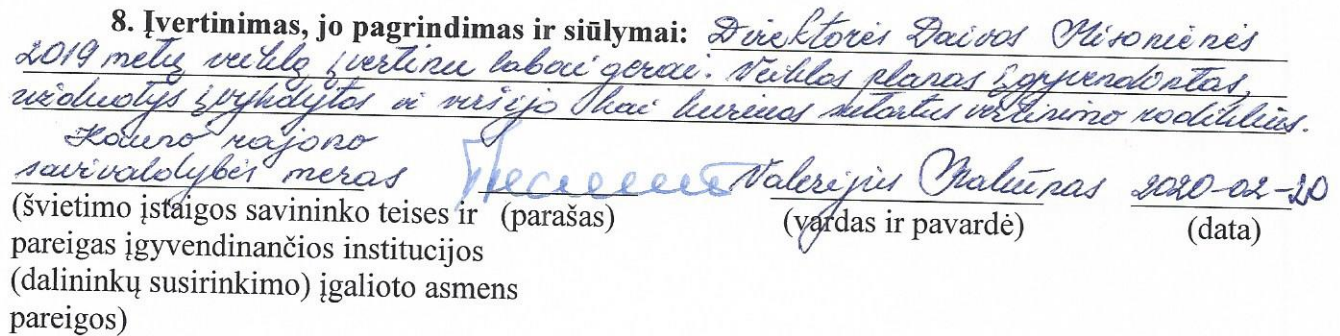 8. Įvertinimas, jo pagrindimas ir siūlymai: Direktorės Daivos Misonienės
2019 metų veiklą įvertinu labai gerai. Veiklos planas įgyvendintas,
užduotys įvykdytos ir viršijo kai kuriuos sutartus vertinimo rodiklius.
Kauno rajono
savivaldybės meras Valerijus Makūnas 2020-02-20
(švietimo įstaigos savininko teises ir (parašas) (vardas ir pavardė) (data)
pareigas įgyvendinančios institucijos
(dalininkų susirinkimo) įgalioto asmens
pareigos)